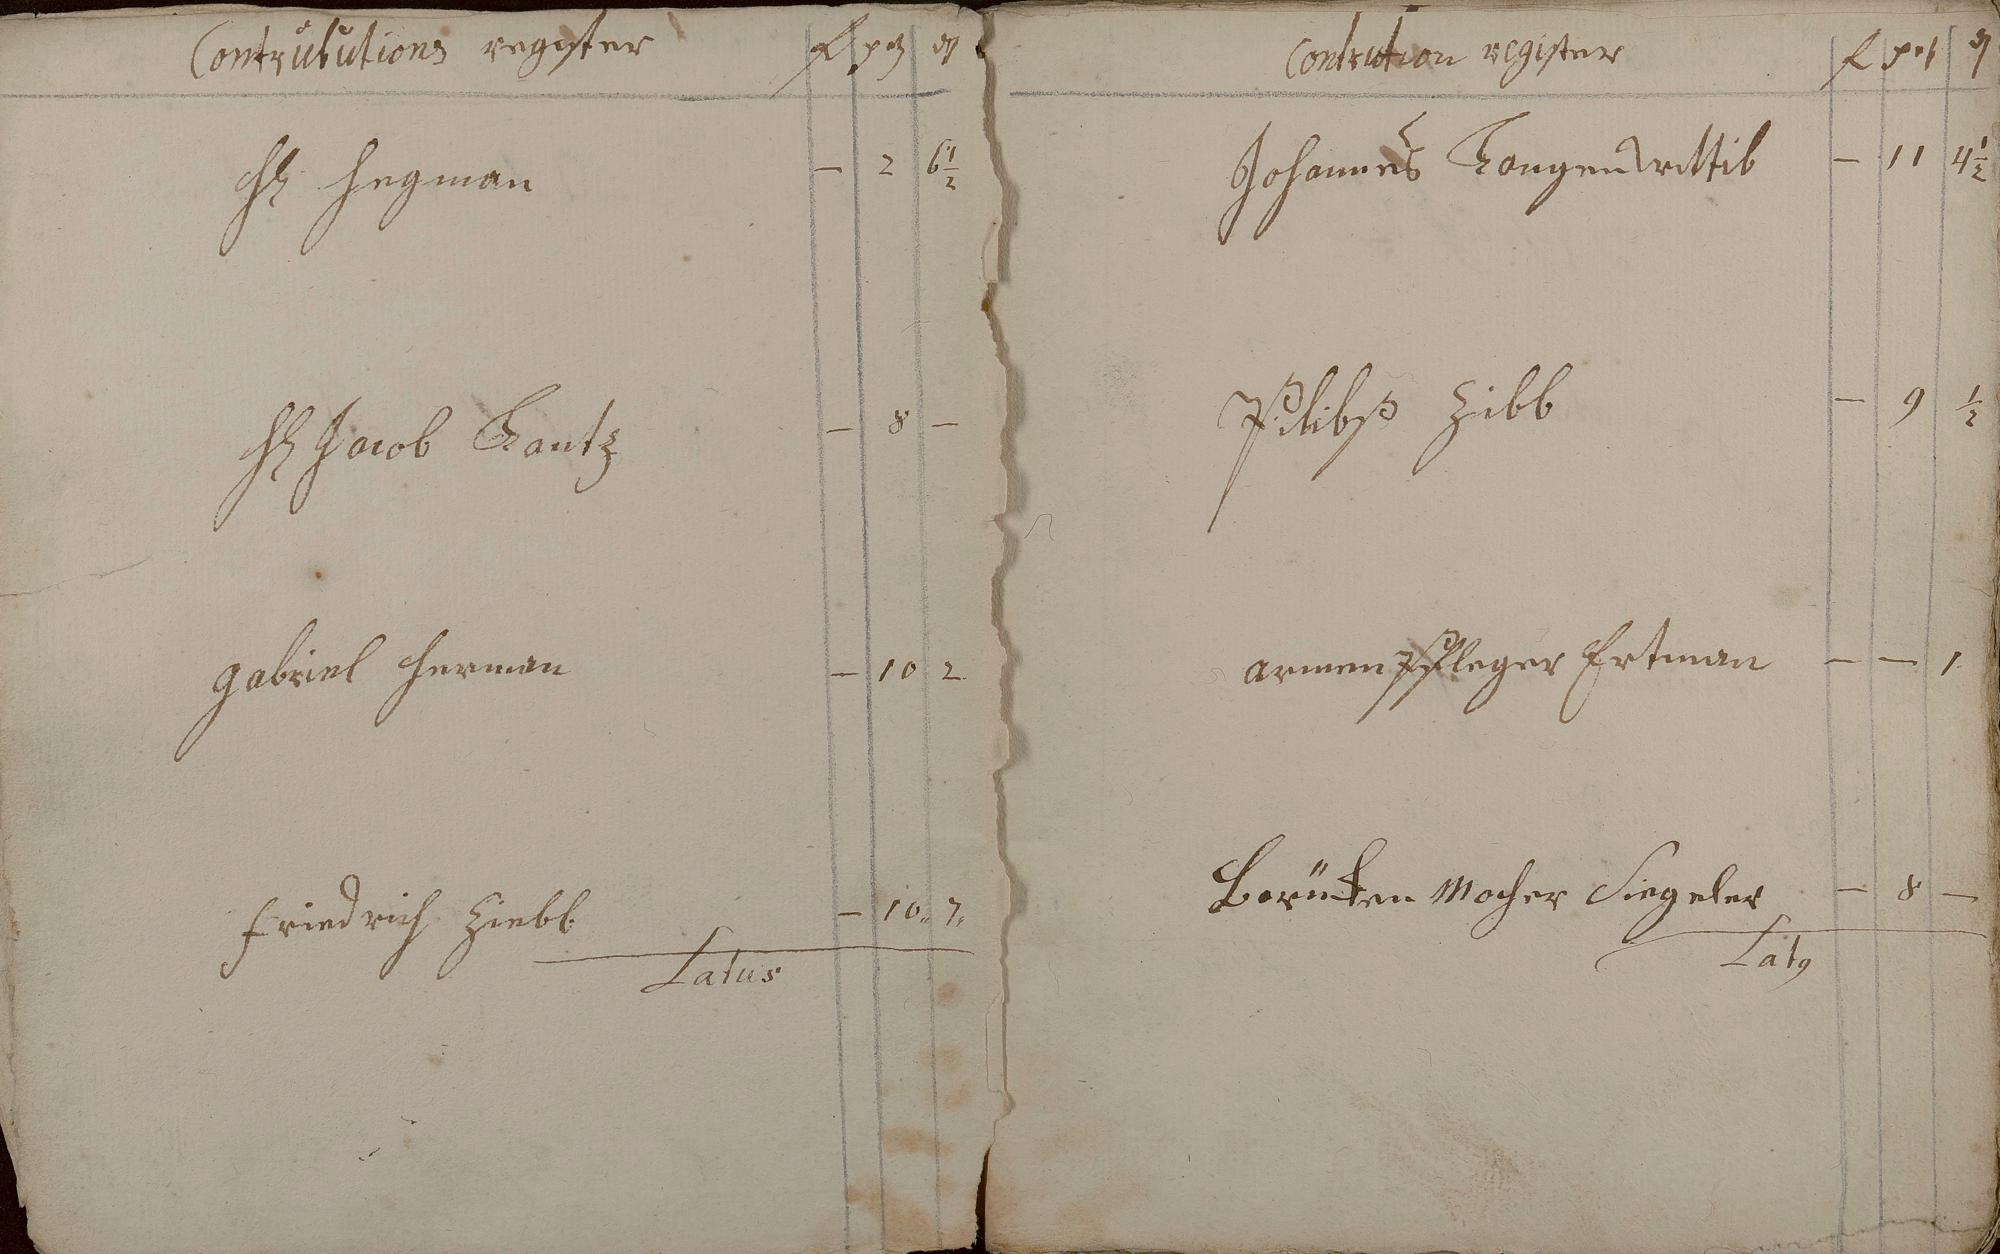 Contrŭbŭtions register f. ps d
H Hegman – 2 6 1/2
H Jacob Kautz – 8 –
gabriel Herman – 10 2
friedrich Ziebl – 10„ 7„
Latus
Contrution register f d
Johannes wittib – 11 4 1/2
Philibß Zibb – 9 1/2
armen Pfleger Ertman – – 1
Macher Siegeler – 8 –
Lat9